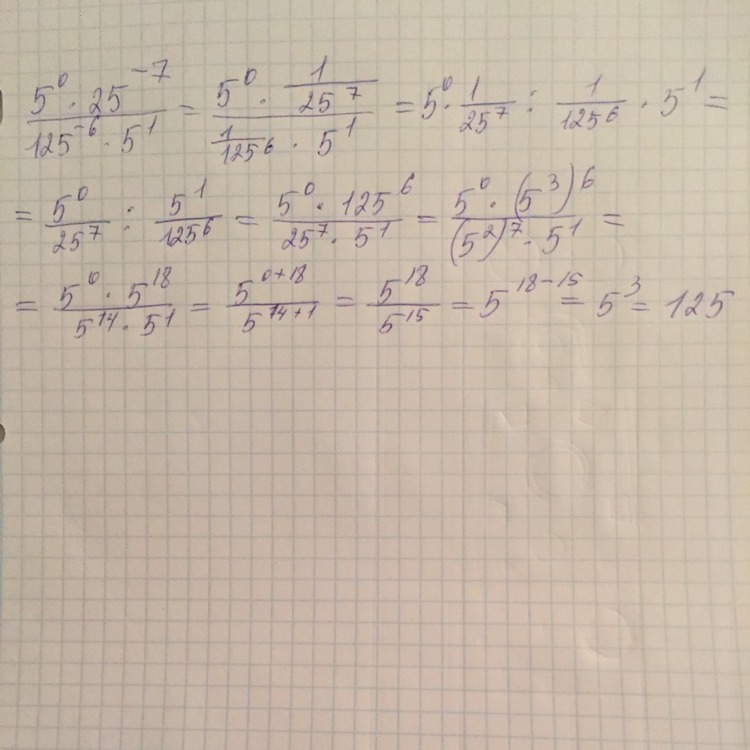 5⁰·25⁻⁷/125⁻⁶·5¹ = 5⁰·1/25⁷/1/125⁶·5¹ = 5⁰·1/25⁷ : 1/125⁶·5¹ =
= 5⁰/25⁷ : 5¹/125⁶ = 5⁰·125⁶/25⁷·5¹ = 5⁰·(5³)⁶/(5²)⁷·5¹ =
= 5⁰·5¹⁸/5¹⁴·5¹ = 5⁰⁺¹⁸/5¹⁴⁺¹ = 5¹⁸/5¹⁵ = 5¹⁸⁻¹⁵ = 5³ = 125